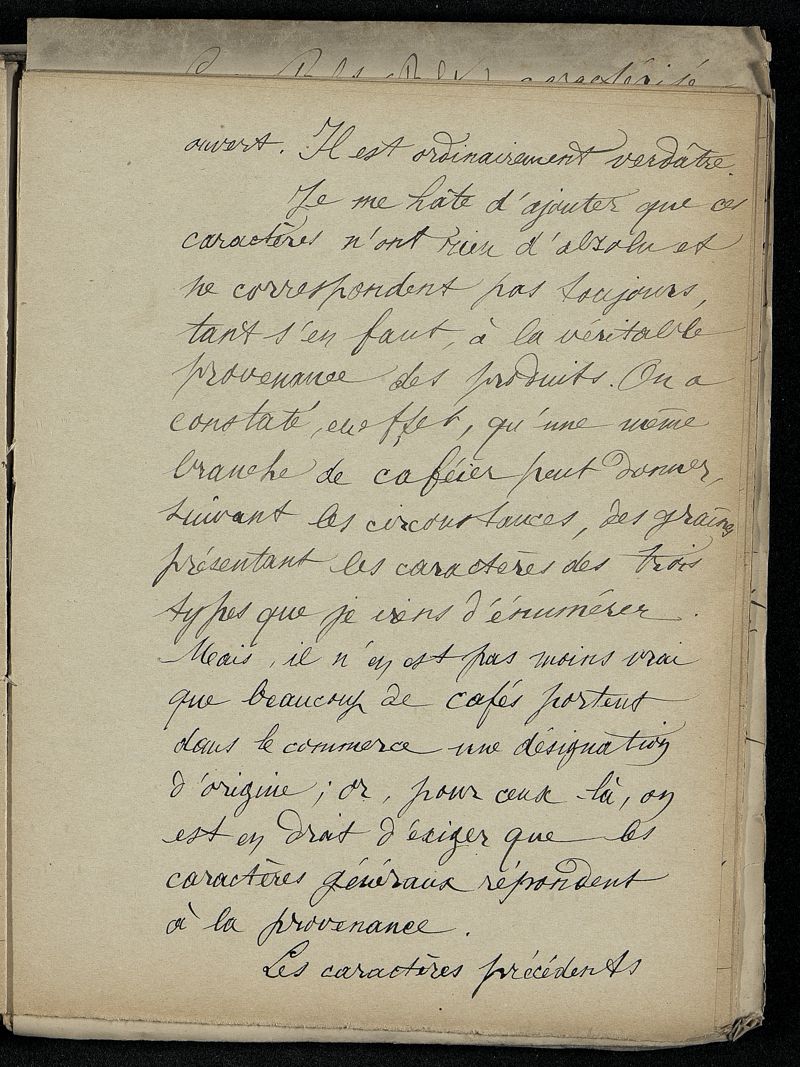 caractérisé
ouvert. Il est ordinairement verdâtre.
Je me hâte d'ajouter que ces
caractères n'ont rien d'absolu et
ne correspondent pas toujours,
tant s'en faut, à la véritable
provenance des produits. On a
constaté, en effet, qu'une même
branche de caféier peut donner,
suivant les circonstances, des grains
présentant les caractères des trois
types que je viens d'énumérer.
Mais, il n'en est pas moins vrai
que beaucoup de cafés portent
dans le commerce une désignation
d'origine ; or, pour ceux-là, on
est en droit d'exiger que les
caractères généraux répondent
à la provenance.
Les caractères précédents